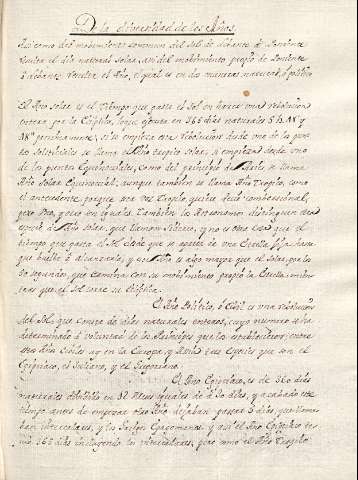 De la diversidad de los Años.
Asi como del mobimiento comun del Sol de Levante à Poniente
resulta el dia natural solar, asi del mobimiento propio de Poniente
à Levante resulta el Año, el qual es en dos maneras natural, ò politico
El Año solar es el tiempo que gasta el Sol en hacer una revolucion
entera por la Ecliptica, lo que ejecuta en 365 dias naturales 5 h. 48' y
proximamente, si se empieza esta revolucion desde uno de los puntos
Solsticiales se llama el Año tropico solar, si empieza desde uno
de los puntos Equinocciales, como del principio de Aries se llama
Año Solar Equinocial, aunque tambien se llama Año Tropico, como
el antecedente, porque esta voz Tropico quiere decir combersional,
pero son, y en iguales. Tambien los Astronomos distinguen otra
especie de Año solar, que llaman Sidereo, y no es otra cosa que el
tiempo que gasta el Sol desde que se aparta de una Estrella fija hasta
que buelve à alcanzarla, y este Año es algo mayor que el solar, por los
50 segundos que camina con su mobimiento propio la Estrella mien-
tras que el Sol corre su Ecliptica.
El Año Politico, ò Civil es una revolucion
del Sol, que consta de dias naturales enteros, cuyo numero se ha
determinado à voluntad de los Principes que los establecieron; entre
estos Años Civiles ay en la Europa, y tres Especies que son el
Egipciaco, el Juliano, y el Gregoriano.
El Año Egipciaco, es de 360 dias
naturales divididos en 12 Meses iguales de à 30 dias, y acabado este
tiempo antes de empezar otro Año dejaban pasar 5 dias, que llama-
ban intercalares, y los Griegos Epagomenas, y asi el Año Egipciaco te-
nia 365 dias incluyendo los intercalares, pero como el Año Tropico